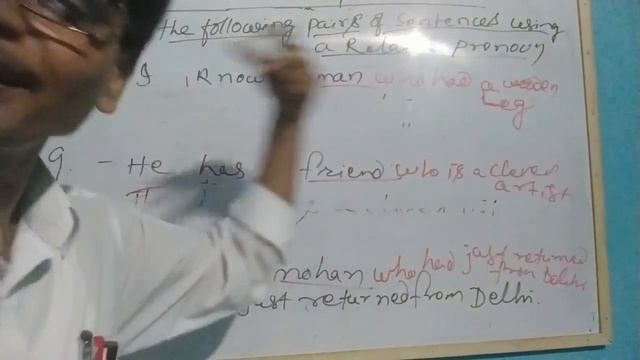 the following pairs of sentences using
a pronoun
I know man who had a wooden
Leg
9. - He has friend who is a clever
artist
mohan who had just returned
from Delhi
just returned from Delhi.